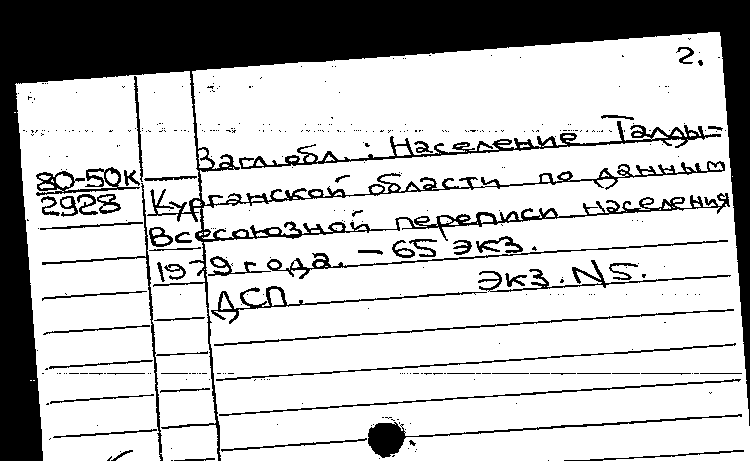 2.
Загл. обл.: Население Талды-
80-50к
2928
Курганской области по данным
Всесоюзной переписи населения
1979 года. - 65 экз.
ДСП. Экз. N5.